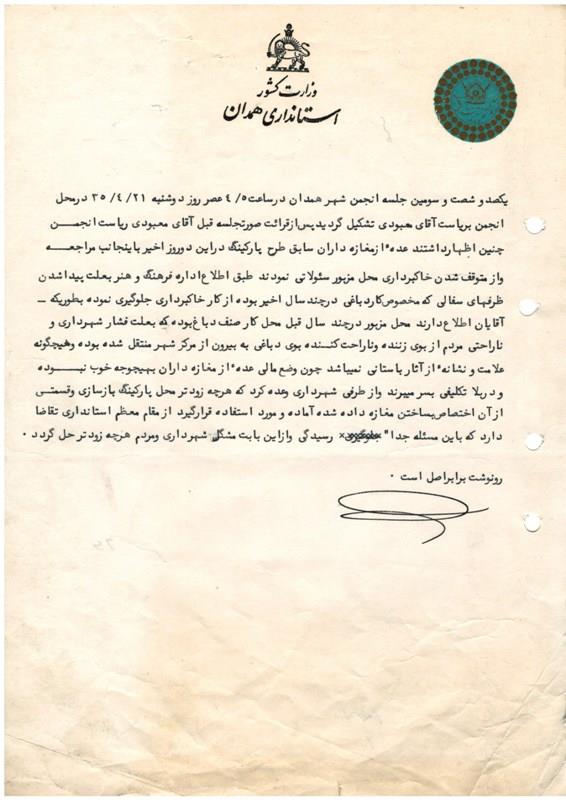 وزارت کشور
استانداری همدان
یکصد و شصت و سومین جلسه انجمن شهر همدان درساعت ۴/۵ عصر روز دوشنبه ۳۵/۴/۲۱ درمحل
انجمن بریاست آقای معبودی تشکیل گردید پس از قرائت صورتجلسه قبل آقای معبودی ریاست انجمـــن
چنین اظهارداشتند عده ء ازمغازه داران سابق طرح پارکینگ دراین دوروز اخیر باینجانب مراجعـــه
واز متوقف شدن خاکبرداری محل مزبور سئولاتی نمودند طبق اطلاع اداره فرهنگ و هنر بعلت پیداشدن
ظرفهای سفالی که مخصوص کارد باغی درچند سال اخیر بوده از کار خاکبرداری جلوگیری نموده بطوریکه ــ
آقایان اطلاع دارند محل مزبور درچند سال قبل محل کار صنف دباغ بوده که بعلت فشار شهرداری و
ناراحتی مردم از بوی زننده وناراحت کننـده بوی دباغی به بیرون از مرکز شهر منتقل شده بوده وهیچگونه
علامت و نشانه ء از آثار باستانی نمیباشد چون وضع مالی عده ء از مغازه داران بهیچوجه خوب نبـــوده
و دربلا تکلیفی بسر میبرند واز طرفی شهرداری وعده کرد که هرچه زودتر محل پارکینگ بازسازی وقسمتی
از آن اختصاص بساختن مغازه داده شده آماده و مورد استفاده قرارگیرد از مقام معظم استانداری تقاضا
دارد که باین مسئله جدا" رسیدگی وازاین بابت مشگل شهرداری ومردم هرچه زودتر حل گردد ۰
رونوشت برابراصل است ۰